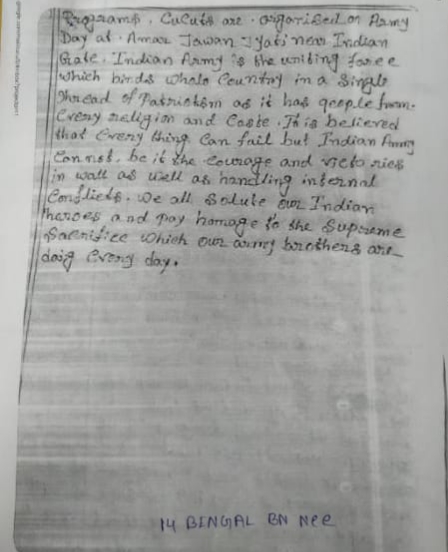 Programs. Cucuts are organised on Army
Day at Amar Jawan Jyati near Indian
Gate. Indian Army is the uniting force
which binds whole Country in a Single
thread of Patriotism as it has people from
Every religion and Caste. It is believed
that Every thing Can fail but Indian Army
Can not, be it the Courage and victories
in wall as well as handling internal
Conflicts. We all Solute our Indian
heroes and pay homage to the Supreme
Sacrifice which our army brothers are
doig Every day.
14 BENGAL BN NCC